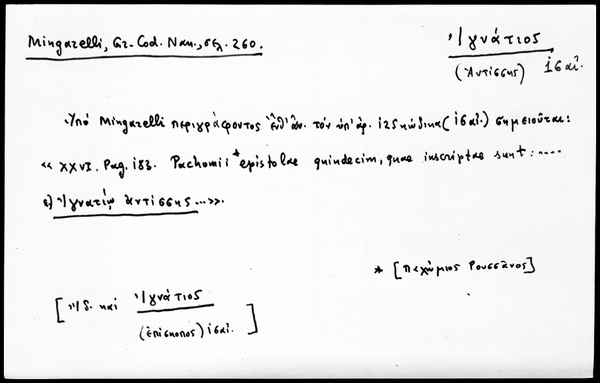 Mingarelli, Gr. Cod. Nan., σελ. 260.
Ἰγνάτιος
(Ἀντίσσης) ις αἰ.
Ὑπὸ Mingarelli περιγράφοντος ἐνθ' ἀν. τὸν ὑπ' ἀρ. 125 κώδικα (ις αἰ.) σημειοῦται:
« XXVI. Pag. 183. Pachomii * epistolae quindecim, quae inscriptae sunt: ....
Ἰγνατίῳ ἀντίσσης ...».
* [Παχώμιος Ρουσσᾶνος]
[Ἰδ. καὶ Ἰγνάτιος
(ἐπίσκοπος) ις αἰ.]